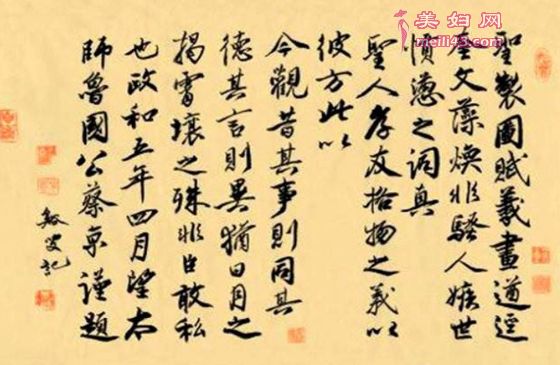 美妇网
meili43.com
聖製圖賦義畫道逕
奎文藻煥非騷人嫉世
憤懣之詞真
聖人孝友格物之義以
彼方此以
今觀昔其事則同其
德其言則異猶日月之
揭霄壤之殊非臣敢私
也政和五年四月望太
師魯國公蔡京謹題
叟記